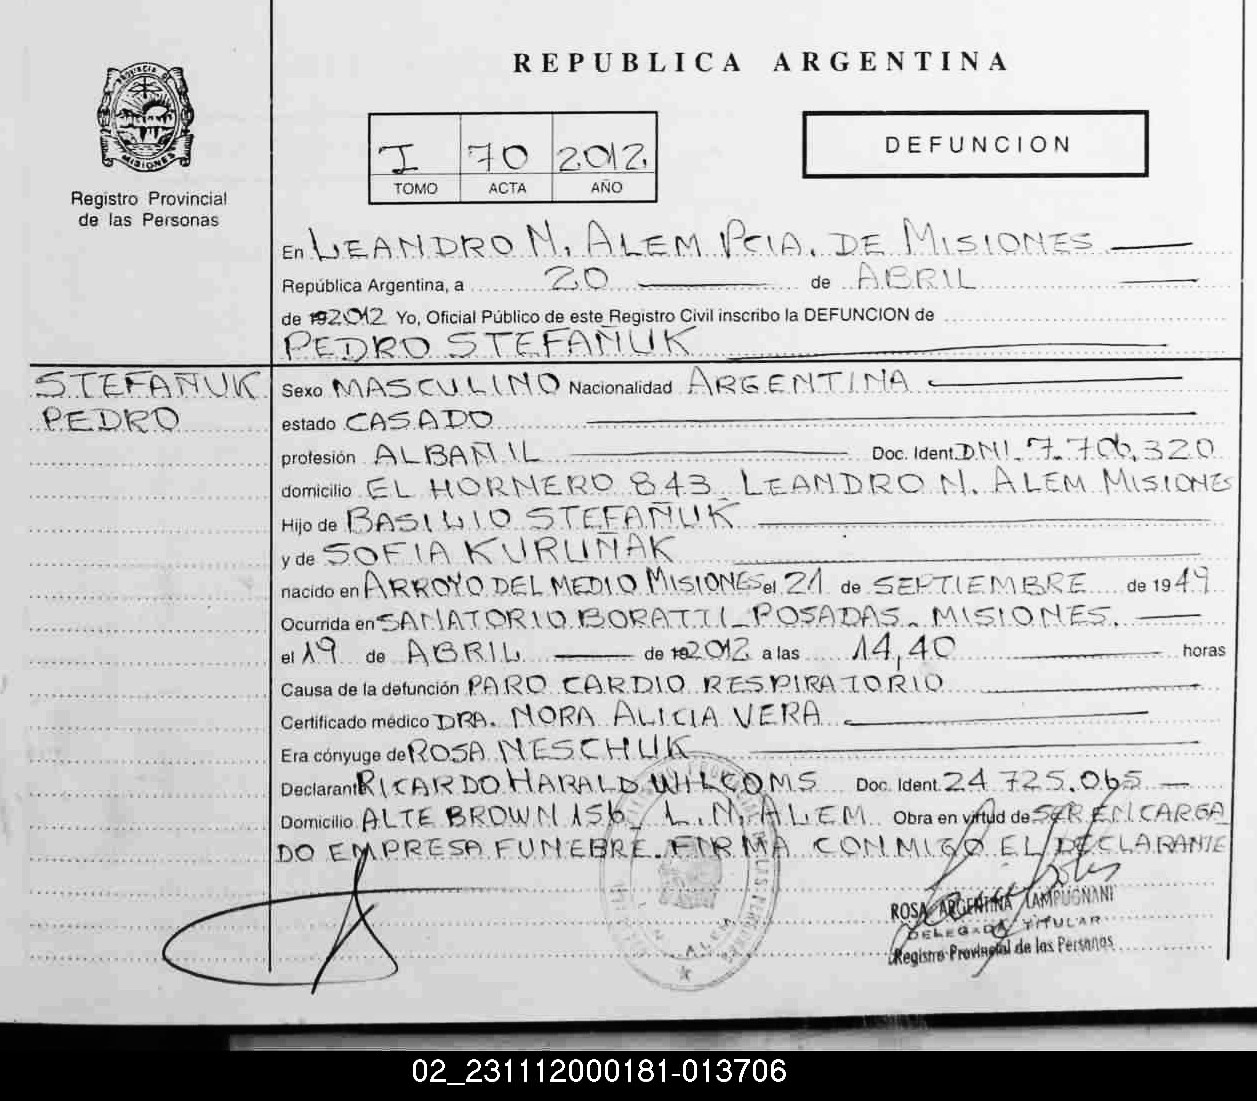 REPUBLICA ARGENTINA
PROVINCIA DE
MISIONES
Registro Provincial
de las Personas
I 70 2012
TOMO ACTA AÑO
DEFUNCION
En LEANDRO N. ALEM PCIA. DE MISIONES
República Argentina, a 20 de ABRIL
de 2012 Yo, Oficial Público de este Registro Civil inscribo la DEFUNCION de
PEDRO STEFAÑUK
STEFAÑUK
PEDRO
Sexo MASCULINO Nacionalidad ARGENTINA
estado CASADO
profesión ALBAÑIL Doc. Ident. DNI. 7.706.320
domicilio EL HORNERO 843 LEANDRO N. ALEM MISIONES
Hijo de BASILIO STEFAÑUK
y de SOFIA KURUÑAK
nacido en ARROYO DEL MEDIO MISIONES el 21 de SEPTIEMBRE de 1949
Ocurrida en SANATORIO BORATTI - POSADAS - MISIONES.
el 19 de ABRIL de 2012 a las 14,40 horas
Causa de la defunción PARO CARDIO RESPIRATORIO
Certificado médico DRA. NORA ALICIA VERA
Era cónyuge de ROSA NESCHUK
Declarant RICARDO HARALD WILCOMS Doc. Ident. 24.725.065
Domicilio ALTE BROWN 156 L. N. ALEM Obra en virtud de SER ENCARGA
DO EMPRESA FUNEBRE. FIRMA CONMIGO EL DECLARANTE
ROSA ARGENTINA LAMPUGNANI
DELEGADA TITULAR
Registro Provincial de las Personas
N. ALEM
02_231112000181-013706